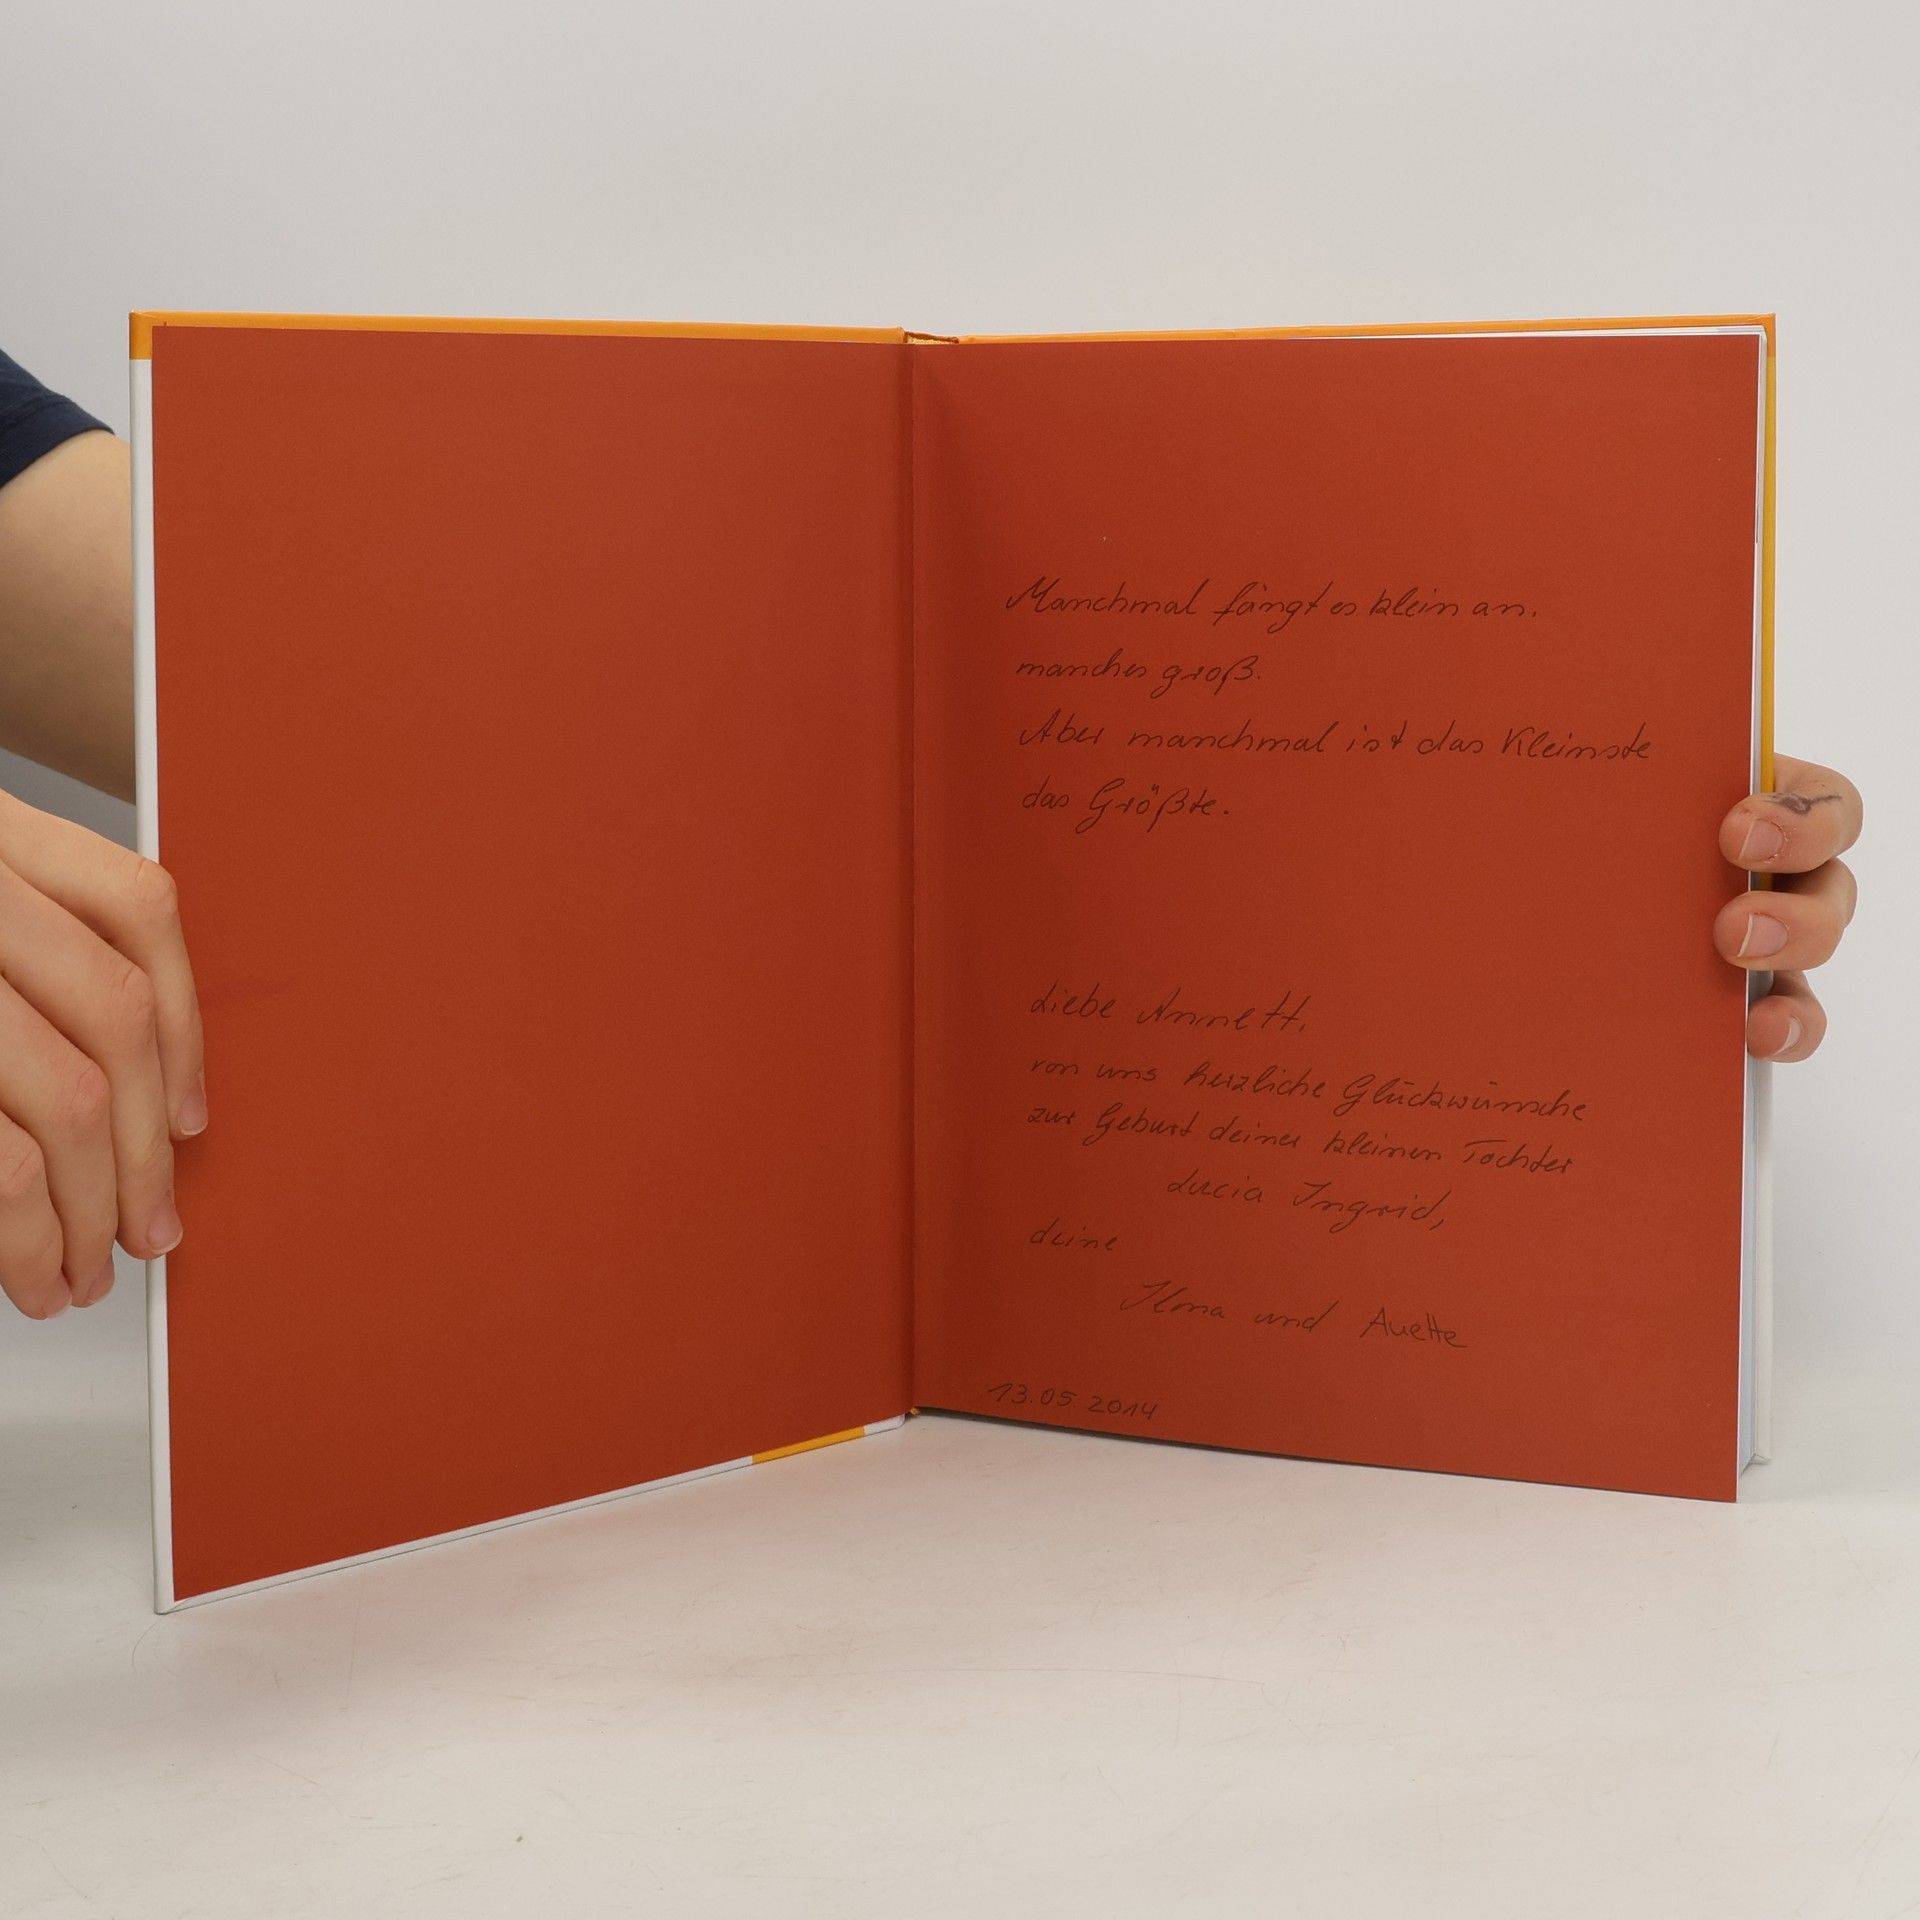 Manchmal fängt es klein an.
manches groß.
Aber manchmal ist das Kleinste
das Größte.
Liebe Annett,
von uns herzliche Glückwünsche
zur Geburt deiner kleinen Tochter
Lucia Ingrid,
deine
Ilma und Auette
13.05.2014